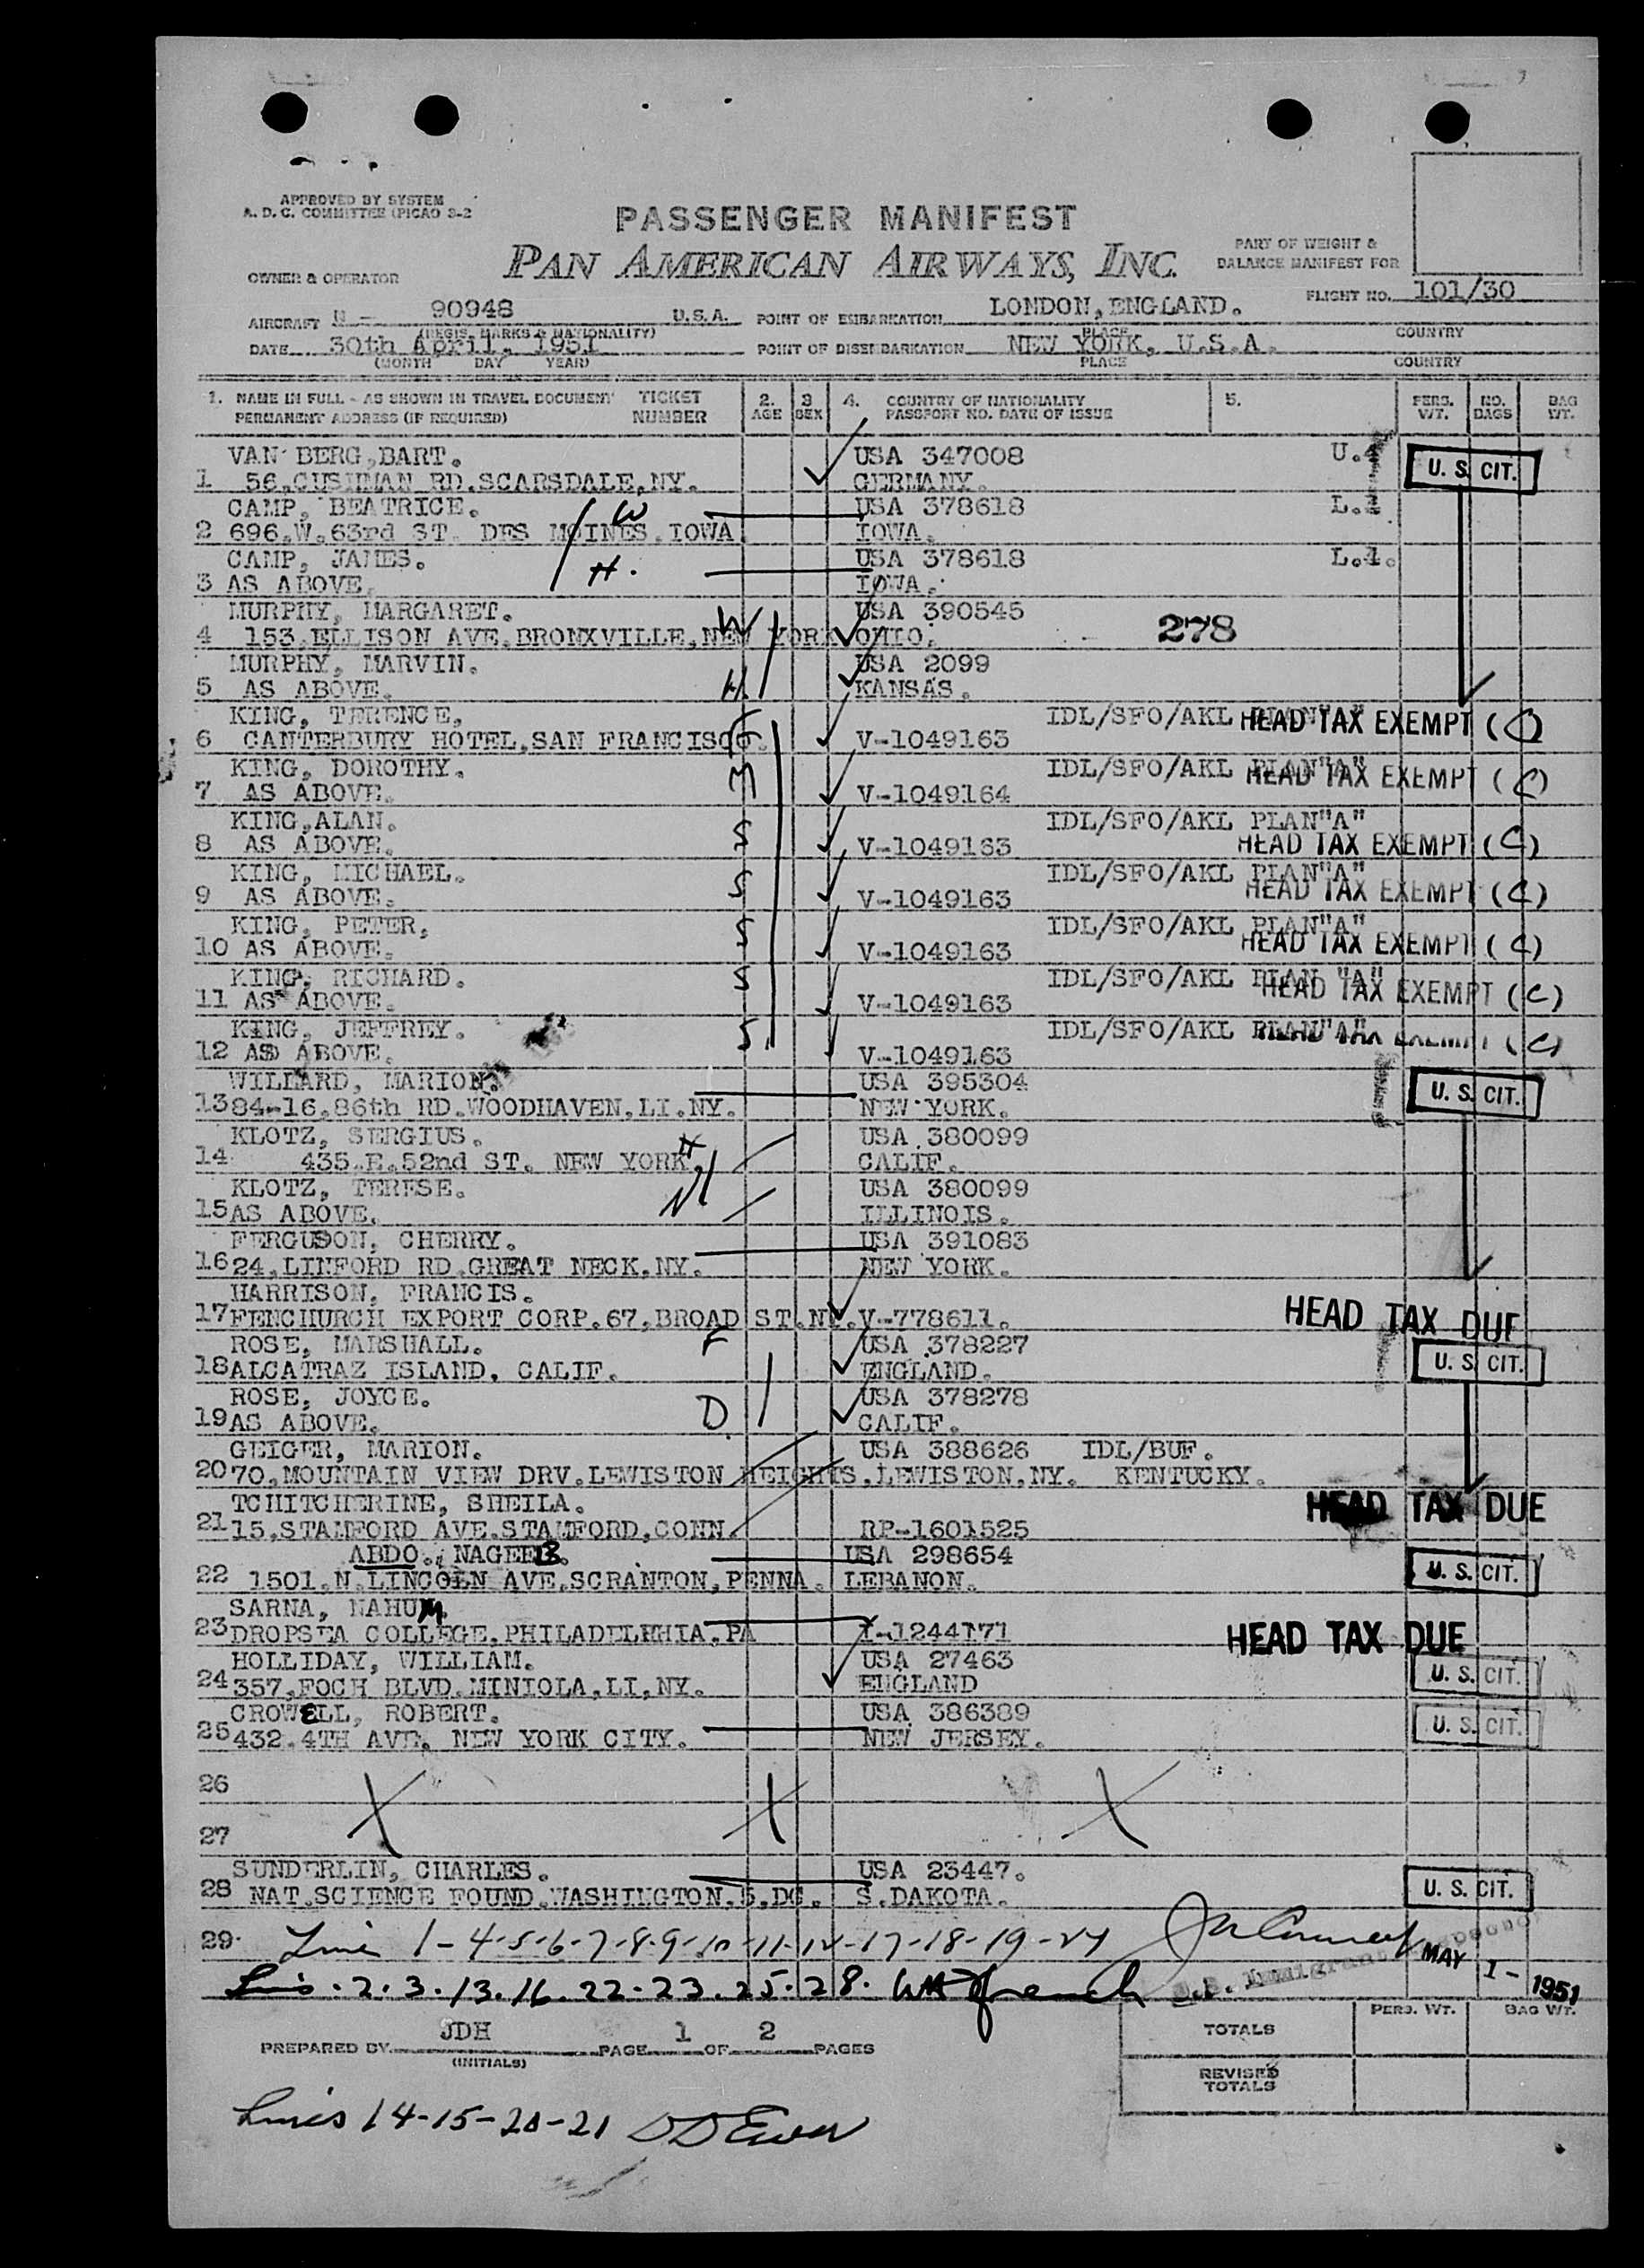 APPROVED BY SYSTEM
A. D. C. COMMITTEE (PICAO 3-2
PASSENGER MANIFEST
PAN AMERICAN AIRWAYS, INC.
PART OF WEIGHT &
BALANCE MANIFEST FOR
OWNER & OPERATOR
FLIGHT NO. 101/30
AIRCRAFT N - 90948 U.S.A. POINT OF EMBARKATION LONDON, ENGLAND.
(REGIS. MARKS & NATIONALITY) PLACE COUNTRY
DATE 30th April, 1951 POINT OF DISEMBARKATION NEW YORK, U.S.A.
(MONTH DAY YEAR) PLACE COUNTRY
1. NAME IN FULL - AS SHOWN IN TRAVEL DOCUMENT TICKET 2. 3 4. COUNTRY OF NATIONALITY 5. PERS. NO. BAG
PERMANENT ADDRESS (IF REQUIRED) NUMBER AGE SEX PASSPORT NO. DATE OF ISSUE WT. BAGS WT.
VAN BERG,BART. USA 347008 U.
1 56,CUSHMAN RD.SCARSDALE,NY. GERMANY. U. S. CIT.
CAMP, BEATRICE. W USA 378618 L.
2 696.W.63rd ST. DES MOINES.IOWA. IOWA.
CAMP, JAMES. H. USA 378618 L.1.
3 AS ABOVE. IOWA.
MURPHY, MARGARET. W USA 390545
4 153.ELLISON AVE.BRONXVILLE,NEW YORK OHIO. 278
MURPHY, MARVIN. USA 2099
5 AS ABOVE. H. KANSAS.
KING, TERENCE, F IDL/SFO/AKL PLAN"A"
6 CANTERBURY HOTEL,SAN FRANCISCO. V-1049163 HEAD TAX EXEMPT (C)
KING, DOROTHY. M IDL/SFO/AKL PLAN"A"
7 AS ABOVE. V-1049164 HEAD TAX EXEMPT (C)
KING,ALAN. S IDL/SFO/AKL PLAN"A"
8 AS ABOVE. V-1049163 HEAD TAX EXEMPT (C)
KING, MICHAEL. S IDL/SFO/AKL PLAN"A"
9 AS ABOVE. V-1049163 HEAD TAX EXEMPT (C)
KING, PETER, S IDL/SFO/AKL PLAN"A"
10 AS ABOVE. V-1049163 HEAD TAX EXEMPT (C)
KING, RICHARD. S IDL/SFO/AKL PLAN "A"
11 AS ABOVE. V-1049163 HEAD TAX EXEMPT (C)
KING, JEFFREY. S. IDL/SFO/AKL PLAN"A"
12 AS ABOVE. V-1049163 HEAD TAX EXEMPT (C)
WILLARD, MARION. USA 395304
13 84-16,86th RD.WOODHAVEN,LI.NY. NEW YORK. U. S. CIT.
KLOTZ, SERGIUS. H USA 380099
14 435.E.52nd ST. NEW YORK. CALIF.
KLOTZ, TERESE. W USA 380099
15 AS ABOVE. ILLINOIS.
FERGUSON, CHERRY. USA 391083
16 24,LINFORD RD.GREAT NECK.NY. NEW YORK.
HARRISON, FRANCIS.
17 FENCHURCH EXPORT CORP.67,BROAD ST.NY. V-778611. HEAD TAX DUE
ROSE, MARSHALL. F USA 378227
18 ALCATRAZ ISLAND, CALIF. ENGLAND. U. S. CIT.
ROSE, JOYCE. D USA 378278
19 AS ABOVE. CALIF.
GEIGER, MARION. USA 388626 IDL/BUF.
20 70,MOUNTAIN VIEW DRV.LEWISTON HEIGHTS.LEWISTON,NY. KENTUCKY.
TCHITCHERINE, SHEILA. HEAD TAX DUE
21 15.STAMFORD AVE.STAMFORD,CONN RP-1601525
ABDO., NAGEEB. USA 298654
22 1501.N.LINCOLN AVE.SCRANTON,PENNA. LEBANON. U. S. CIT.
SARNA, NAHUM.
23 DROPSEA COLLEGE.PHILADELPHIA.PA I-1244171 HEAD TAX DUE
HOLLIDAY, WILLIAM. USA 27463
24 357,FOCH BLVD.MINIOLA,LI,NY. ENGLAND U. S. CIT.
CROWELL, ROBERT. USA 386389
25 432.4TH AVE. NEW YORK CITY. NEW JERSEY. U. S. CIT.
26
27
SUNDERLIN, CHARLES. USA 23447.
28 NAT.SCIENCE FOUND.WASHINGTON,5,DC. S.DAKOTA. U. S. CIT.
29. Line 1-4-5-6-7-8-9-10-11-12-17-18-19-24
MAY 1 - 1951
U.S. Immigrant Inspector
Lines. 2. 3. 13. 16. 22. 23. 25. 28.
PERS. WT. BAG WT.
TOTALS
PREPARED BY JDH PAGE 1 OF 2 PAGES
(INITIALS)
REVISED
TOTALS
Lines 14-15-20-21